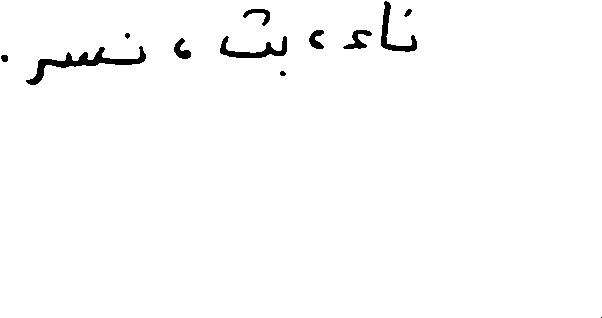 ناء، بث، نسر.